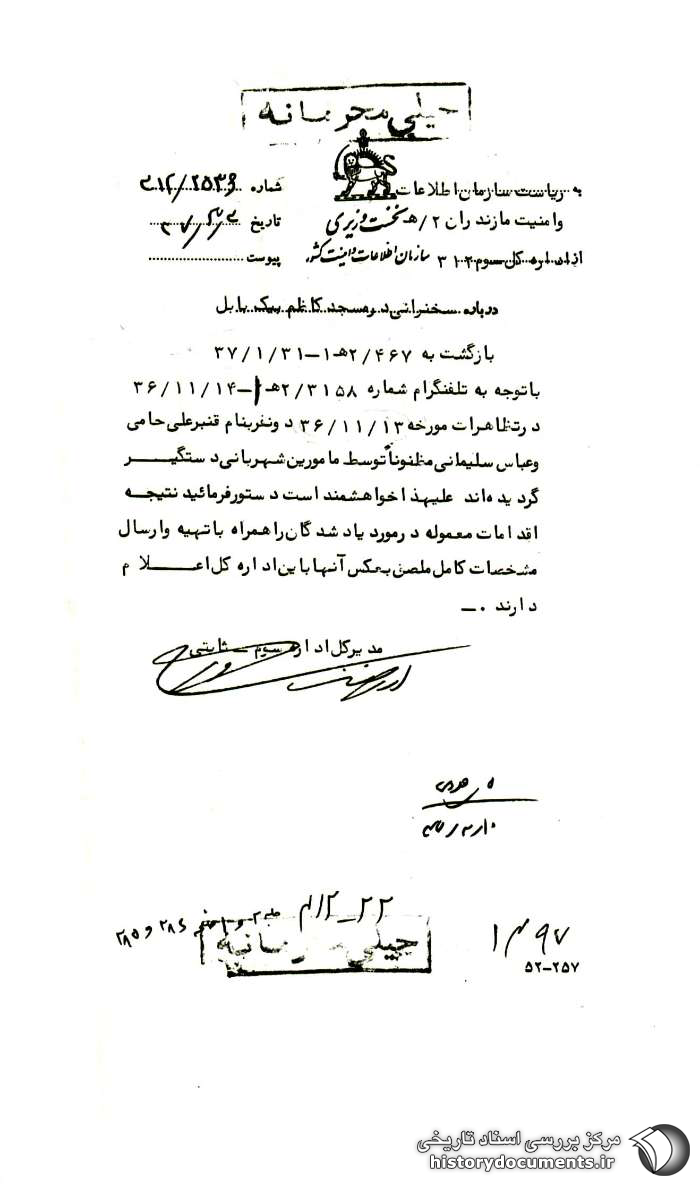 خیلی محرمانه
به ریاست سازمان اطلاعات
وامنیت مازندران ۲/هـ نخست وزیری
از اداره کل سوم ۳۱۲ سازمان اطلاعات و امنیت کشور
شماره ۳۱۲/۲۵۳۹
تاریخ
پیوست
درباره سخنرانی درمسجد کاظم بیک بابل
بازگشت به ۲/۴۶۷هـ۱-۳۷/۱/۳۱
باتوجه به تلفنگرام شماره ۲/۳۱۵۸هـ۱-۳۶/۱۱/۱۴
درتظاهرات مورخه ۳۶/۱۱/۱۳ دونفربنام قنبرعلی حامی
وعباس سلیمانی مظنوناً توسط مامورین شهربانی دستگیر
گردیده‌اند علیهذا خواهشمند است دستورفرمائید نتیجه
اقدامات معموله درمورد یاد شدگان راهمراه باتهیه وارسال
مشخصات کامل ملصق بعکس آنها باین اداره کل اعلام
دارند .ـ
مدیرکل اداره سوم ـ ثابتی
۲۲-۱۲
۲۸۴ و ۲۸۵
خیلی محرمانه
۵۲-۲۵۷
مرکز بررسی اسناد تاریخی
historydocuments.ir